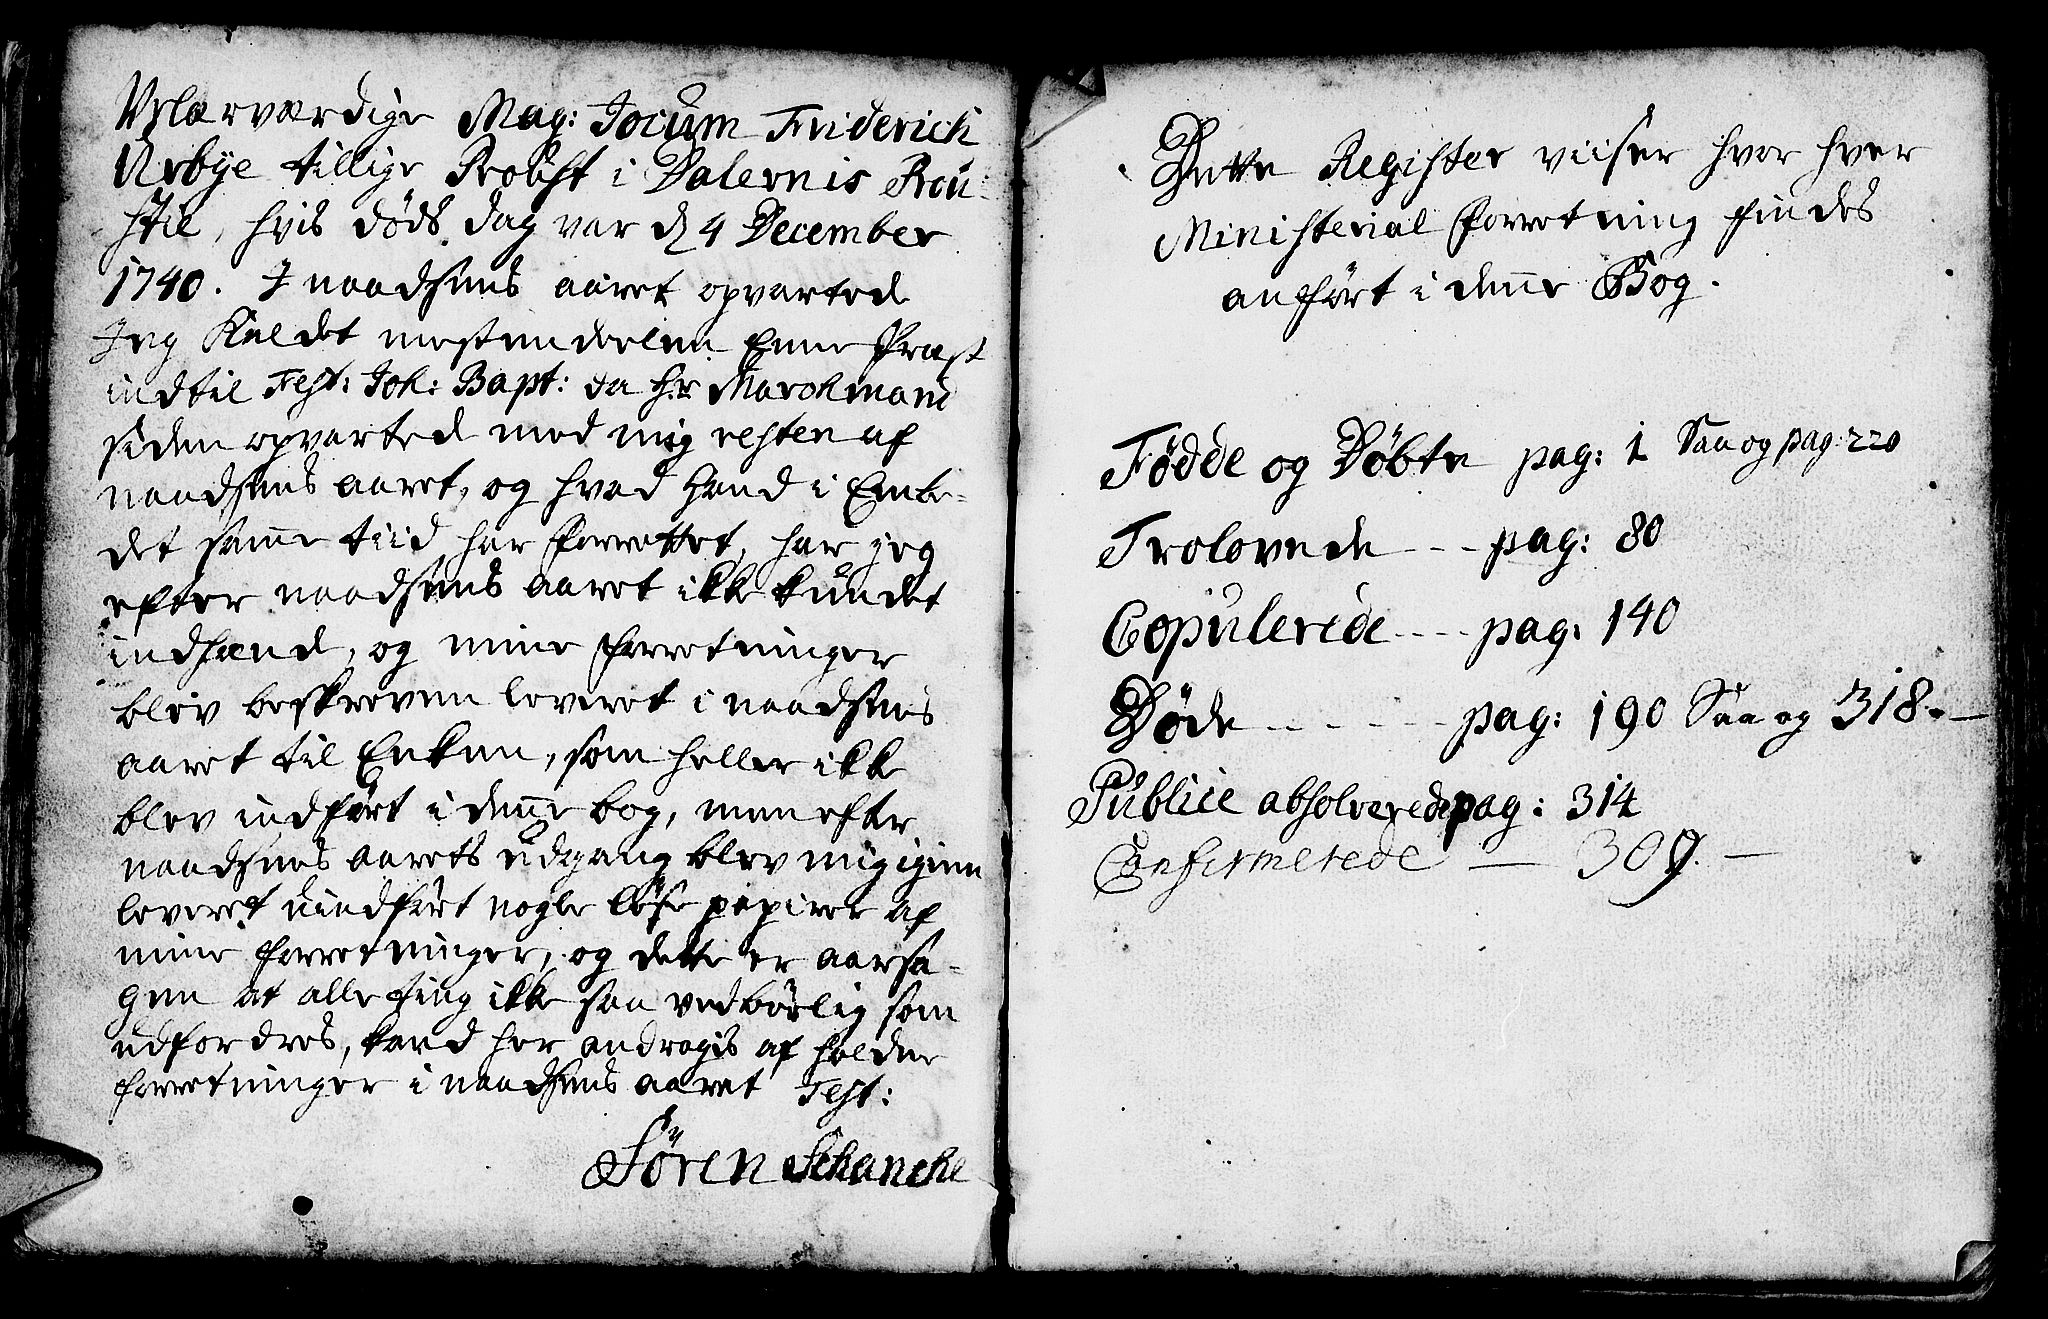 Velærværdige Mag: Jocum Friderich
Arbÿe tillige Probst i Dalernis Prou-
stie, hvis døds dag var d 4 December
1740. I naadsens aaret opvartede
Jeg Kaldet mestendeelen Eene Præst
indtil Fest: Joh: Bapt: da Hr Marckmand
siden opvartede med mig resten af
naadsens aaret, og hvad Hand i Embe-
det samme tiid har forrettet, har jeg
efter naadsens aaret ikke kundet
indhænde, og mine forretninger
blev beskreven leveret i naadsens
aaret til Enken, som heller ikke
blev indført i denne bog, men efter
naadsens aarets udgang blev mig igien
leveret uindført nogle løse papirer af
mine forretninger, og dette er aarsa-
gen at alle ting ikke saa vedbørlig som
udfordres, kand her andragis af holdne
forretninger i naadsens aaret Test:
Sören Schancke
Dette Register viiser hvor hver
Ministerial forretning findes
anført i denne Bog.
Fødde og Døbte pag: 1 Saa og pag: 220
Trolovede --- pag: 80
Copulerede ---- pag: 140
Døde ------ pag: 190 Saa og 318. —
Publice absolverede pag: 314
Confirmerede — 309. —